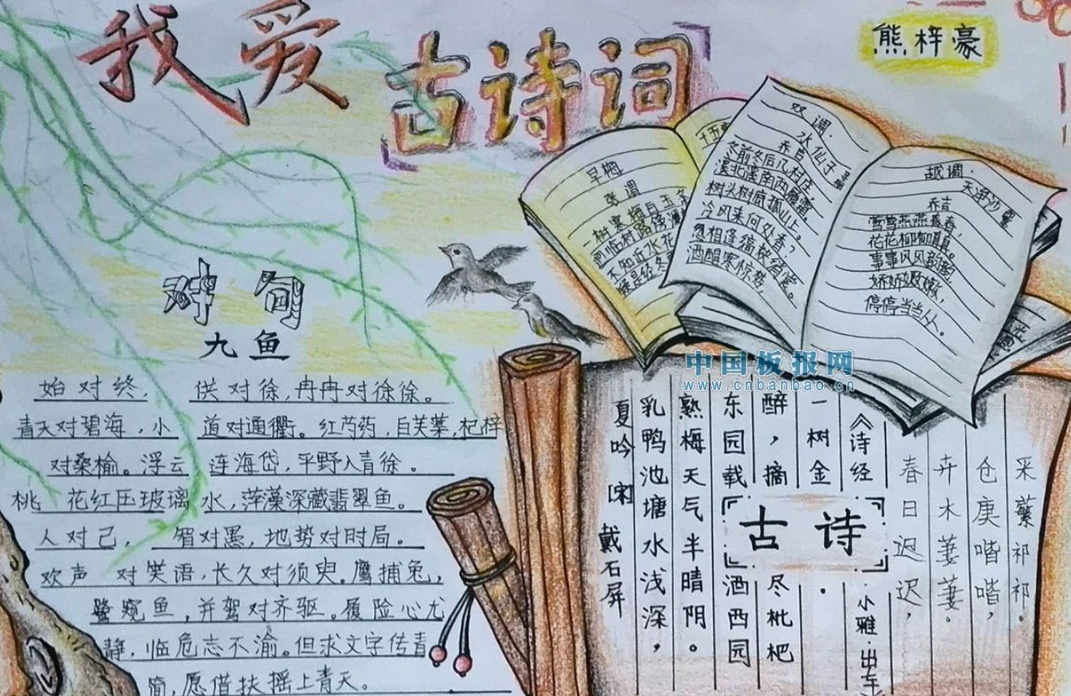 我爱
古诗词
熊梓豪
早梅
张谓
一树寒梅白玉条
不知近水花
双调·
水仙子
乔吉
冬前冬后几村庄
溪北溪南两履霜
树头树底孤山上
冷风来何处香?
忽相逢缟袂绡裳
酒醒寒惊梦,
越调·
天净沙
乔吉
莺莺燕燕春春,
花花柳柳真真
事事风风韵韵
娇娇嫩嫩,
停停当当人。
对句
九鱼
始对终, 供对徐,冉冉对徐徐。
青天对碧海,小道对通衢。红芍药,白芙蓉,杞梓
对桑榆。浮云连海岱,平野入青徐。
桃花红压玻璃水,萍藻深藏翡翠鱼。
人对己, 对愚,地势对时局。
欢声对笑语,长久对须臾。鹰捕兔,
鹭窥鱼,并驾对齐驱。履险心尤
静,临危志不渝。但求文字传青
简,愿借扶摇上青天。
中国板报网
www.cnbanbao.cn
古诗
采蘩祁祁。
仓庚喈喈,
卉木萋萋。
春日迟迟,
《诗经 小雅·出车
一树金
醉,摘尽枇杷
东园载酒西园
熟梅天气半晴阴。
乳鸭池塘水浅深,
夏吟[宋]戴石屏